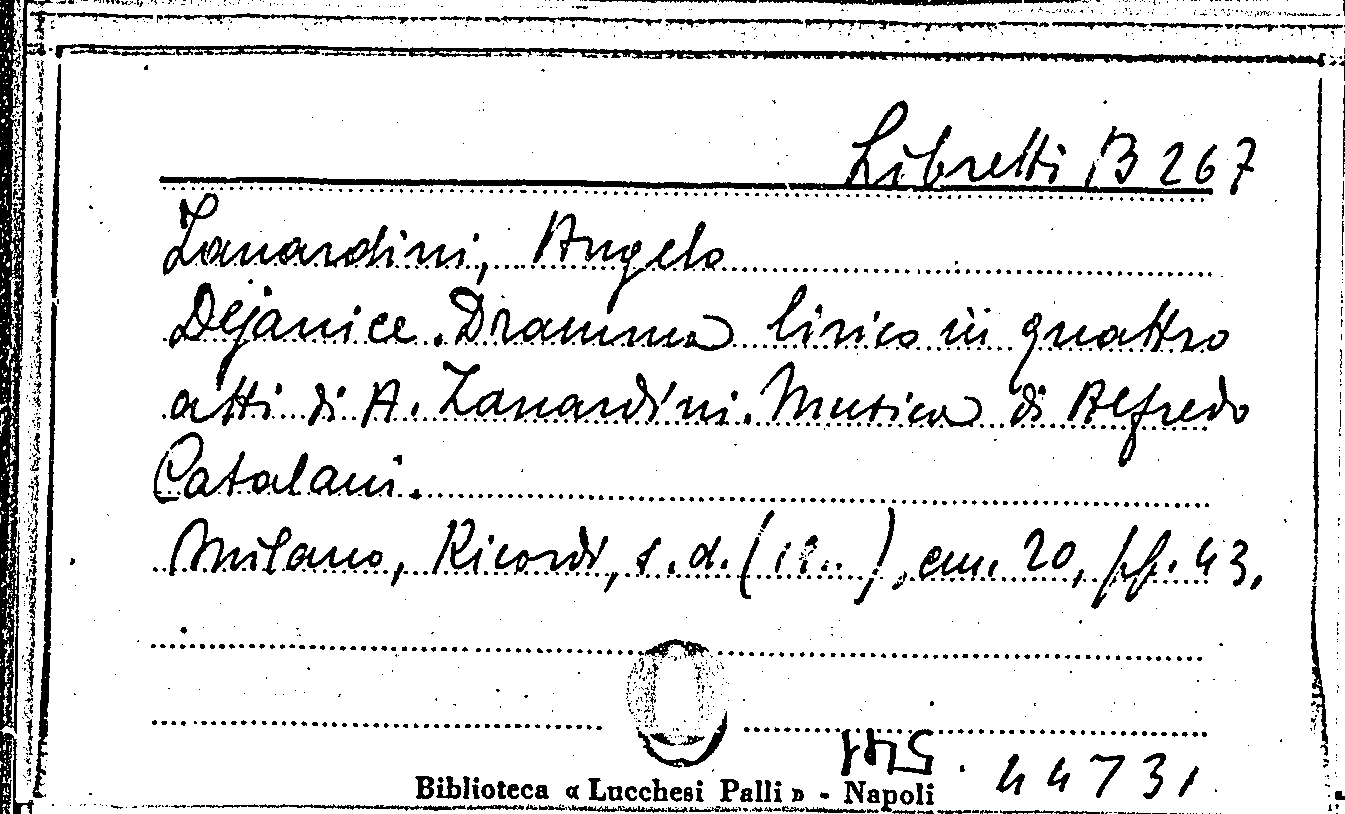 Libretti B 267
Zanardini, Angelo
Dejanice. Dramma lirico in quattro
atti di A. Zanardini. Musica di Alfredo
Catalani.
Milano, Ricordi, s. d. (18..), cm. 20, pp. 43.
541
44731
Biblioteca « Lucchesi Palli » - Napoli